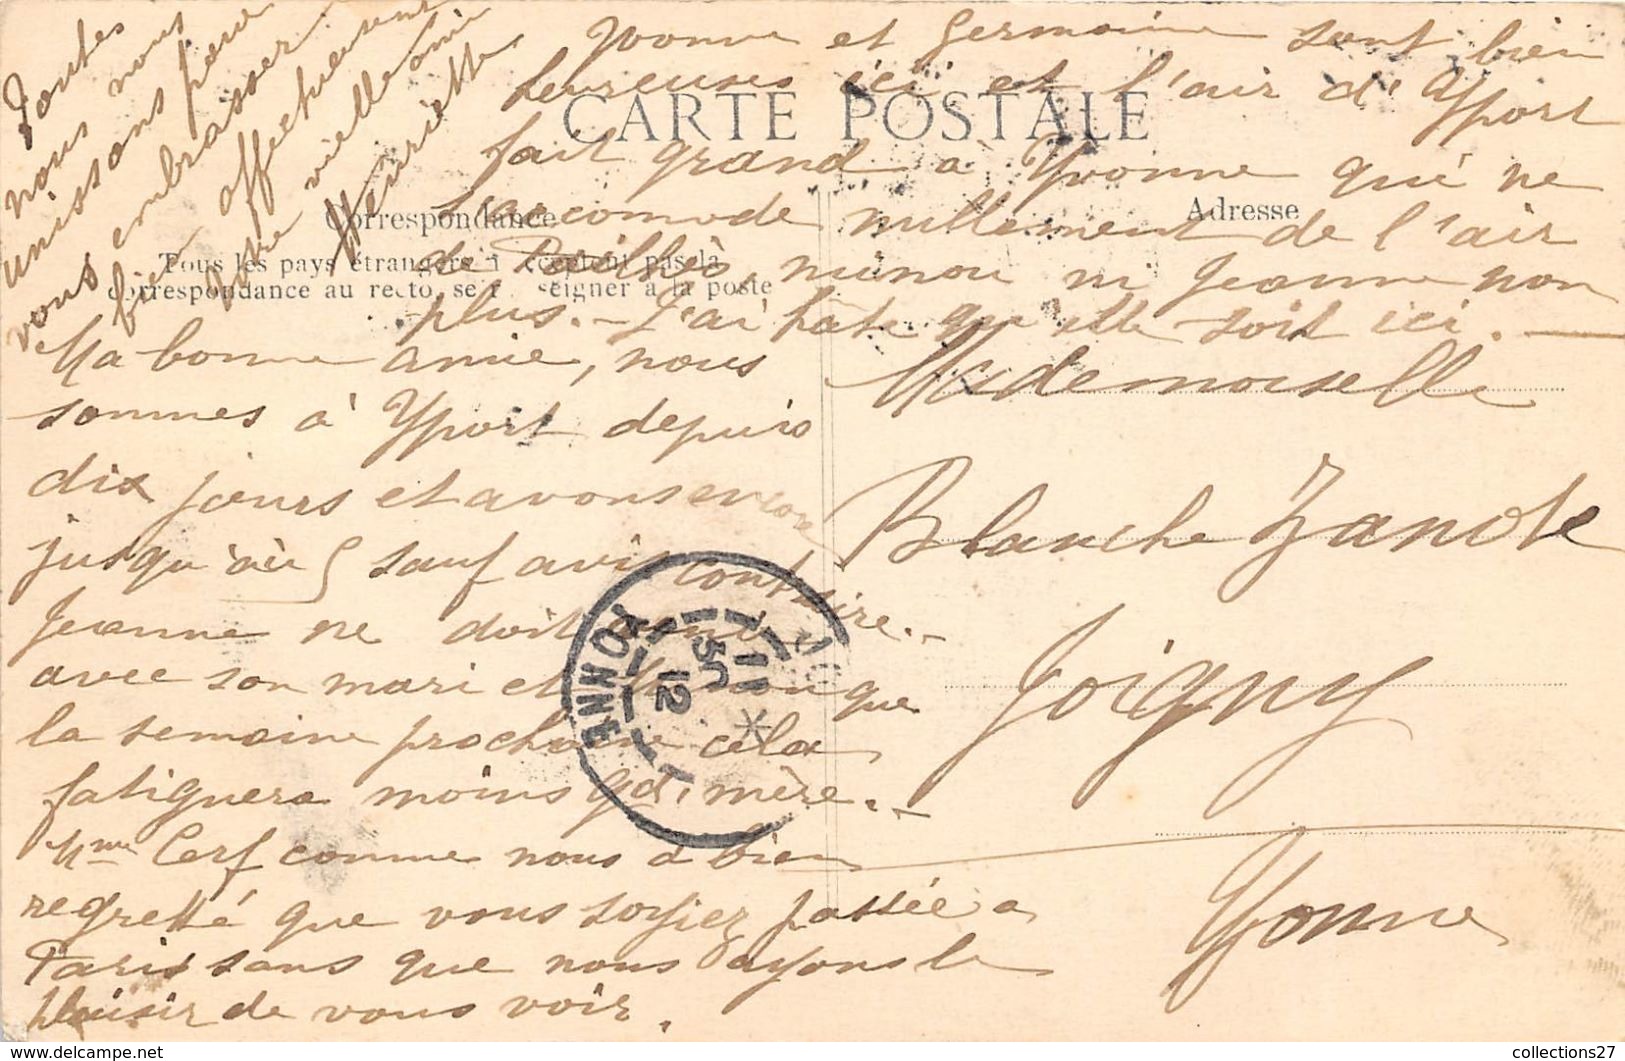 CARTE POSTALE
Correspondance
Adresse
Tous les pays étrangers n'acceptent pas la
correspondance au recto, se renseigner à la poste
Ma bonne amie, nous
sommes à Yport depuis
dix jours et avons
jusqu'au sauf avis contraire.-
Jeanne ne doit venir
avec son mari et que
la semaine prochaine cela
fatiguera moins gd. mère.-
Mme Cerf comme nous a bien
regretté que vous soyiez passée a
Paris sans que nous ayons le
plaisir de vous voir.
Yvonne et Germaine sont bien
heureuses ici et l'air d'Yport
fait grand à Yvonne qui ne
s'accomode nullement de l'air
de minou ni Jeanne non
plus.- J'ai hâte qu'elle soit ici.-
Toutes
nous nous
unissons pour
vous embrasser
bien affectueusement
votre vieille amie
Henriette
Mademoiselle
Blanche
Joigny
Yonne
YONNE
12
collections27